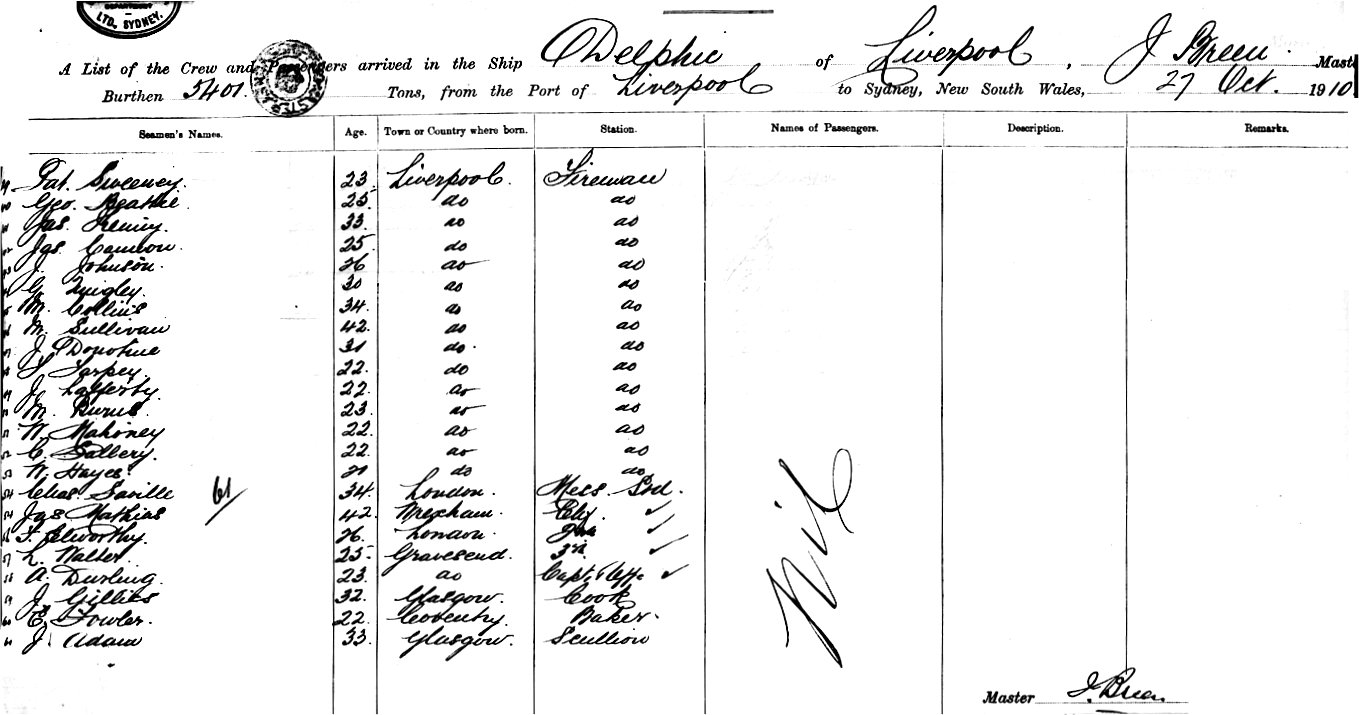 LTD., SYDNEY.
A List of the Crew and Passengers arrived in the Ship Delphic of Liverpool, J Breen Master
Burthen 5401 Tons, from the Port of Liverpool to Sydney, New South Wales, 27 Oct. 1910
Seamen's Names. Age. Town or Country where born. Station. Names of Passengers. Description. Remarks.
Pat. Sweeney. 23 Liverpool. Fireman
Geo. Beattie 25 do do
Jas. 33. do do
Jas Cameron. 25 do do
J. Johnson. 26 do do
G. Quigley. 30 do do
M. Collins 34. do do
M. Sullivan 42. do do
J. O'Donohue 31 do. do
Tarpey. 22. do do
J. Lafferty. 22. do do
M. Burns. 23. do do
W. Mahoney 22. do do
C. Sallery. 22. do do
W. Hayes. do do
Chas. Saville 61 34. London. Mess Std.
Jas Mathias 42. Wrexham.
F. Elworthy. 26. London.
L. Walter. 25 Gravesend. 3rd
A. Durling. 23. do Capt.
J. Gillies 32. Glasgow. Cook
E. Fowler. 22. Coventry. Baker.
J. Adam 33. Glasgow. Scullion
Nil
Master J. Breen.